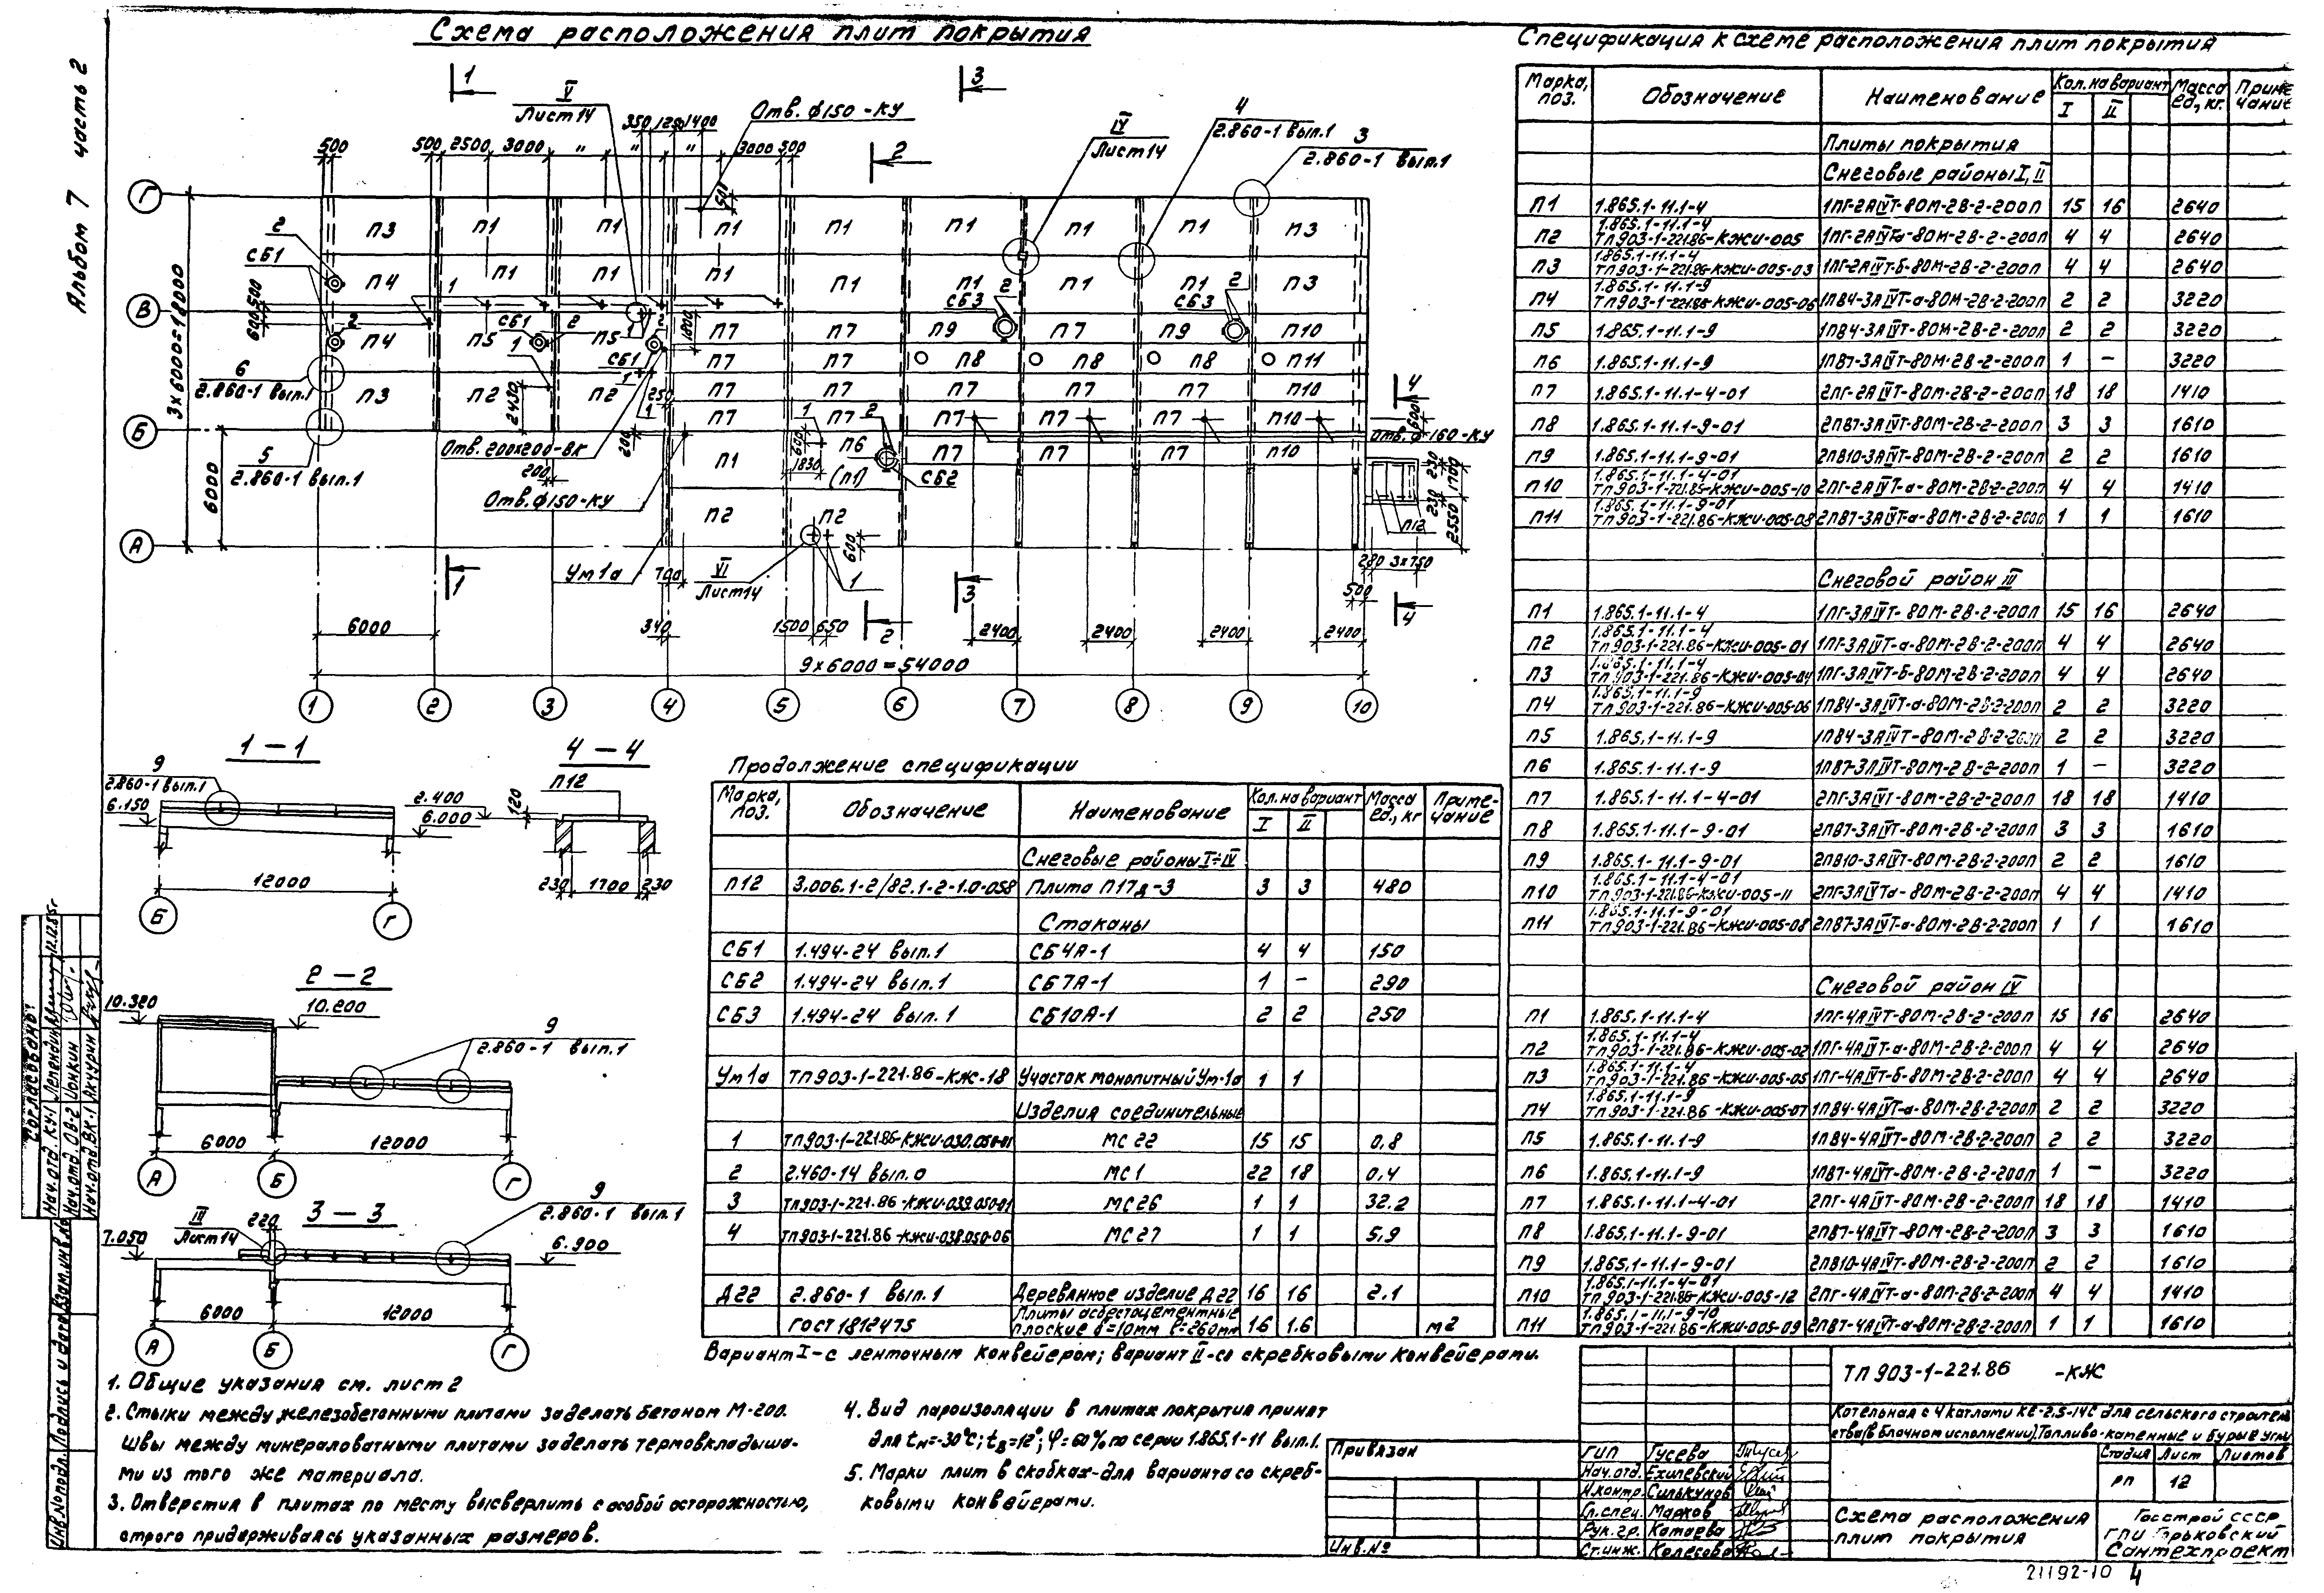 Альбом 7 часть 2
Схема расположения плит покрытия
Спецификация к схеме расположения плит покрытия
Марка, поз. Обозначение Наименование Кол. на вариант Масса ед., кг. Примечание
I II
Плиты покрытия
Снеговые районы I, II
П1 1.865.1-11.1-4 1ПГ-2АIVТ-80М-2В-2-200П 15 16 2640
П2 1.865.1-11.1-4 ТП903-1-221.86-КЖИ-005 1ПГ-2АIVТа-80М-2В-2-200П 4 4 2640
П3 1.865.1-11.1-4 ТП903-1-221.86-КЖИ-005-03 1ПГ-2АIVТ-б-80М-2В-2-200П 4 4 2640
П4 1.865.1-11.1-9 ТП903-1-221.86-КЖИ-005-06 1ПВ4-3АIVТ-а-80М-2В-2-200П 2 2 3220
П5 1.865.1-11.1-9 1ПВ4-3АIVТ-80М-2В-2-200П 2 2 3220
П6 1.865.1-11.1-9 1ПВ7-3АIVТ-80М-2В-2-200П 1 - 3220
П7 1.865.1-11.1-4-01 2ПГ-2АIVТ-80М-2В-2-200П 18 18 1410
П8 1.865.1-11.1-9-01 2ПВ7-3АIVТ-80М-2В-2-200П 3 3 1610
П9 1.865.1-11.1-9-01 2ПВ10-3АIVТ-80М-2В-2-200П 2 2 1610
П10 1.865.1-11.1-4-01 ТП903-1-221.85-КЖИ-005-10 2ПГ-2АIVТ-а-80М-2В-2-200П 4 4 1410
П11 1.865.1-11.1-9-01 ТП903-1-221.86-КЖИ-005-08 2ПВ7-3АIVТ-а-80М-2В-2-200П 1 1 1610
Снеговой район III
П1 1.865.1-11.1-4 1ПГ-3АIVТ-80М-2В-2-200П 15 16 2640
П2 1.865.1-11.1-4 ТП903-1-221.86-КЖИ-005-01 1ПГ-3АIVТ-а-80М-2В-2-200П 4 4 2640
П3 1.865.1-11.1-4 ТП903-1-221.86-КЖИ-005-04 1ПГ-3АIVТ-б-80М-2В-2-200П 4 4 2640
П4 1.865.1-11.1-9 ТП903-1-221.86-КЖИ-005-06 1ПВ4-3АIVТ-а-80М-2В-2-200П 2 2 3220
П5 1.865.1-11.1-9 1ПВ4-3АIVТ-80М-2В-2-200П 2 2 3220
П6 1.865.1-11.1-9 1ПВ7-3АIVТ-80М-2В-2-200П 1 - 3220
П7 1.865.1-11.1-4-01 2ПГ-3АIVТ-80М-2В-2-200П 18 18 1410
П8 1.865.1-11.1-9-01 2ПВ7-3АIVТ-80М-2В-2-200П 3 3 1610
П9 1.865.1-11.1-9-01 2ПВ10-3АIVТ-80М-2В-2-200П 2 2 1610
П10 1.865.1-11.1-4-01 ТП903-1-221.86-КЖИ-005-11 2ПГ-3АIVТа-80М-2В-2-200П 4 4 1410
П11 1.865.1-11.1-9-01 ТП903-1-221.86-КЖИ-005-08 2ПВ7-3АIVТ-а-80М-2В-2-200П 1 1 1610
Снеговой район IV
П1 1.865.1-11.1-4 1ПГ-4АIVТ-80М-2В-2-200П 15 16 2640
П2 1.865.1-11.1-4 ТП903-1-221.86-КЖИ-005-02 1ПГ-4АIVТ-а-80М-2В-2-200П 4 4 2640
П3 1.865.1-11.1-4 ТП903-1-221.86-КЖИ-005-05 1ПГ-4АIVТ-б-80М-2В-2-200П 4 4 2640
П4 1.865.1-11.1-9 ТП903-1-221.86-КЖИ-005-07 1ПВ4-4АIVТ-а-80М-2В-2-200П 2 2 3220
П5 1.865.1-11.1-9 1ПВ4-4АIVТ-80М-2В-2-200П 2 2 3220
П6 1.865.1-11.1-9 1ПВ7-4АIVТ-80М-2В-2-200П 1 - 3220
П7 1.865.1-11.1-4-01 2ПГ-4АIVТ-80М-2В-2-200П 18 18 1410
П8 1.865.1-11.1-9-01 2ПВ7-4АIVТ-80М-2В-2-200П 3 3 1610
П9 1.865.1-11.1-9-01 2ПВ10-4АIVТ-80М-2В-2-200П 2 2 1610
П10 1.865.1-11.1-4-01 ТП903-1-221.86-КЖИ-005-12 2ПГ-4АIVТ-а-80М-2В-2-200П 4 4 1410
П11 1.865.1-11.1-9-10 ТП903-1-221.86-КЖИ-005-09 2ПВ7-4АIVТ-а-80М-2В-2-200П 1 1 1610
1 V Лист 14 350 1400 Отв. ф150-КУ 3
IV Лист 14 4 2.860-1 вып.1 3 2.860-1 вып.1
500 500 2500 3000 " " " 3000 500 2
Г П3 П1 П1 П1 П1 П1 П1 П1 П3 500
2 СБ1 П4 П1 П1 П1 П1 П1 П1 П1 П3
В 3×6000=18000 600 500 1 СБ3 2 СБ3 2
П4 СБ1 П5 2 П5 1800 П7 П7 П9 П7 П9 П10
П7 П7 П8 П8 П8 П11
6 2.860-1 вып.1 П3 П2 2430 П2 СБ1 250 П7 П7 П7 П7 П7 П10
Б П7 П7 П7 П7 П7 П10 4 600
5 2.860-1 вып.1 Отв. 200×200-ВК 200 200 Отв. ф160-КУ
П1 600 1830 П6 (П1) СБ2 П7 П7 П7 П10
Отв. ф150-КУ П2 П2 600 230 1700 230 2550 П12
А 6000 Ум1а 700 VI Лист 14 1 280 3×750
1 3 500
6000 340 1500 650 2 2400 2400 2400 2400 4
9×6000=54000
1 2 3 4 5 6 7 8 9 10
1-1
9 2.860-1 вып.1
6.150 6.000
12000
Б Г
4-4
П12
2.400 120
230 1700 230
2-2
10.320 10.200
9 2.860-1 вып.1
6000 12000
А Б Г
3-3
III Лист 14 220
9 2.860-1 вып.1
7.050 6.900
6000 12000
А Б Г
Продолжение спецификации
Марка, поз. Обозначение Наименование Кол. на вариант Масса ед., кг Примечание
I II
Снеговые районы I÷IV
П12 3.006.1-2/82.1-2-1.0-058 Плита П17д-3 3 3 480
Стаканы
СБ1 1.494-24 вып.1 СБ4А-1 4 4 150
СБ2 1.494-24 вып.1 СБ7А-1 1 - 290
СБ3 1.494-24 вып.1 СБ10А-1 2 2 250
Ум1а ТП903-1-221.86-КЖ-18 Участок монолитный Ум-1а 1 1
Изделия соединительные
1 ТП903-1-221.86-КЖИ-030.050-01 МС22 15 15 0,8
2 2.460-14 вып.0 МС1 22 18 0,4
3 ТП903-1-221.86-КЖИ-039.050-01 МС26 1 1 32.2
4 ТП903-1-221.86-КЖИ-038.050-06 МС27 1 1 5,9
Д22 2.860-1 вып.1 Деревянное изделие Д22 16 16 2,1
ГОСТ 18124 75 Плиты асбестоцементные плоские δ=10мм ℓ=260мм 1.6 1.6 м2
Вариант I-с ленточным конвейером; вариант II-со скребковыми конвейерами.
1. Общие указания см. лист 2
2. Стыки между железобетонными плитами заделать бетоном М-200.
Швы между минераловатными плитами заделать термовкладыша-
ми из того же материала.
3. Отверстия в плитах по месту высверлить с особой осторожностью,
строго придерживаясь указанных размеров.
4. Вид пароизоляции в плитах покрытия принят
для tн=-30°С; tв=12°; φ=60% по серии 1.865.1-11 вып.1.
5. Марки плит в скобках-для варианта со скреб-
ковыми конвейерами.
Привязан
Инв.№
ГИП Гусева
Нач.отд. Ехилевский
Н.контр. Силькунов
Гл.спец. Марков
Рук.гр. Катаева
Ст.инж. Колесова
ТП903-1-221.86 -КЖ
Котельная с 4 котлами КЕ-2,5-14С для сельского строитель
ства (в блочном исполнении). Топливо-каменные и бурые угли
Стадия Лист Листов
РП 12
Схема расположения
плит покрытия
Госстрой СССР
ГПИ Горьковский
Сантехпроект
21192-10 4
Согласовано:
Нач.отд. КУ-1 Лепендин 12.12.85г
Нач.отд ОВ-2 Цонкин
Нач.отд. ВК-1 Ахчурин
Инв.№подл. Подпись и дата Взам.инв.№